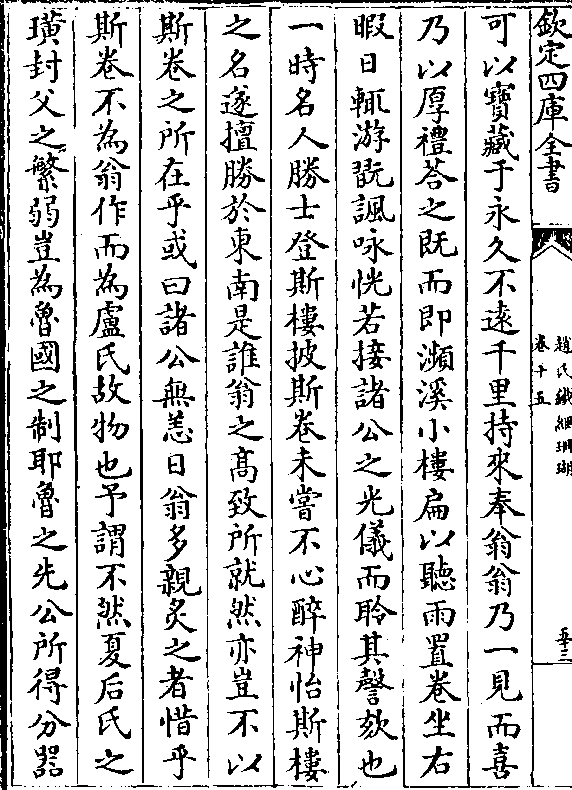 欽定四庫全書
趙氏鐵網珊瑚
卷十五
可以寶藏于永久不遠千里持來奉翁翁乃一見而喜
乃以厚禮荅之既而即瀕溪小樓扁以聽雨置卷坐右
暇日輒游翫諷咏恍若接諸公之光儀而聆其謦欬也
一時名人勝士登斯樓披斯卷未嘗不心醉神怡斯樓
之名遂擅勝於東南是誰翁之高致所就然亦豈不以
斯卷之所在乎或曰諸公無恙日翁多親炙之者惜乎
斯卷不為翁作而為盧氏故物也予謂不然夏后氏之
璜封父之繁弱豈為魯國之制耶魯之先公所得分器